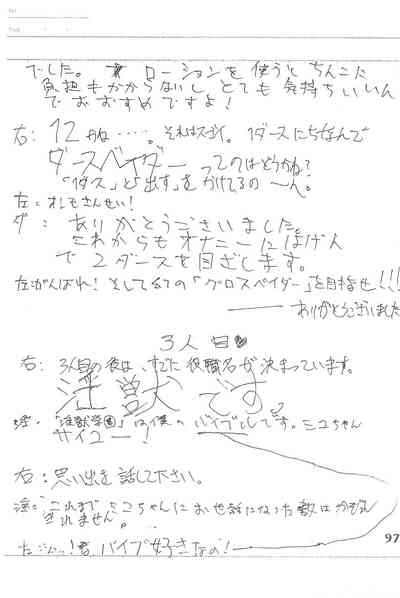 でした。ローションを使うとちんこに
負担もかからないし、とても気持ちいいん
でおおすめですよ!
右:12かね……。それはスゴイ。1ダースにちなんで
ダースベイダーってのはどうかね?
「1ダス」と「出す」をかけてるの〜ん。
左:オレもさんせい!
ダ:ありがとうございました。
これからもオナニーにはげん
で2ダースを目ざします。
左:がんばれ!そしてるての「グロスベイダー」を目指せ!!!
ありがとうございました
3人目♥
右:3人目の彼は、すでに役職名が決まっています。
淫獣です。
淫:「淫獣学園」は僕のバイブとしてです。ミユちゃん
サイコー!
右:思い出を話して下さい。
淫:これまでミコちゃんにお世話になった数はかぞえ
きれません。
バイブ好きなの!
97